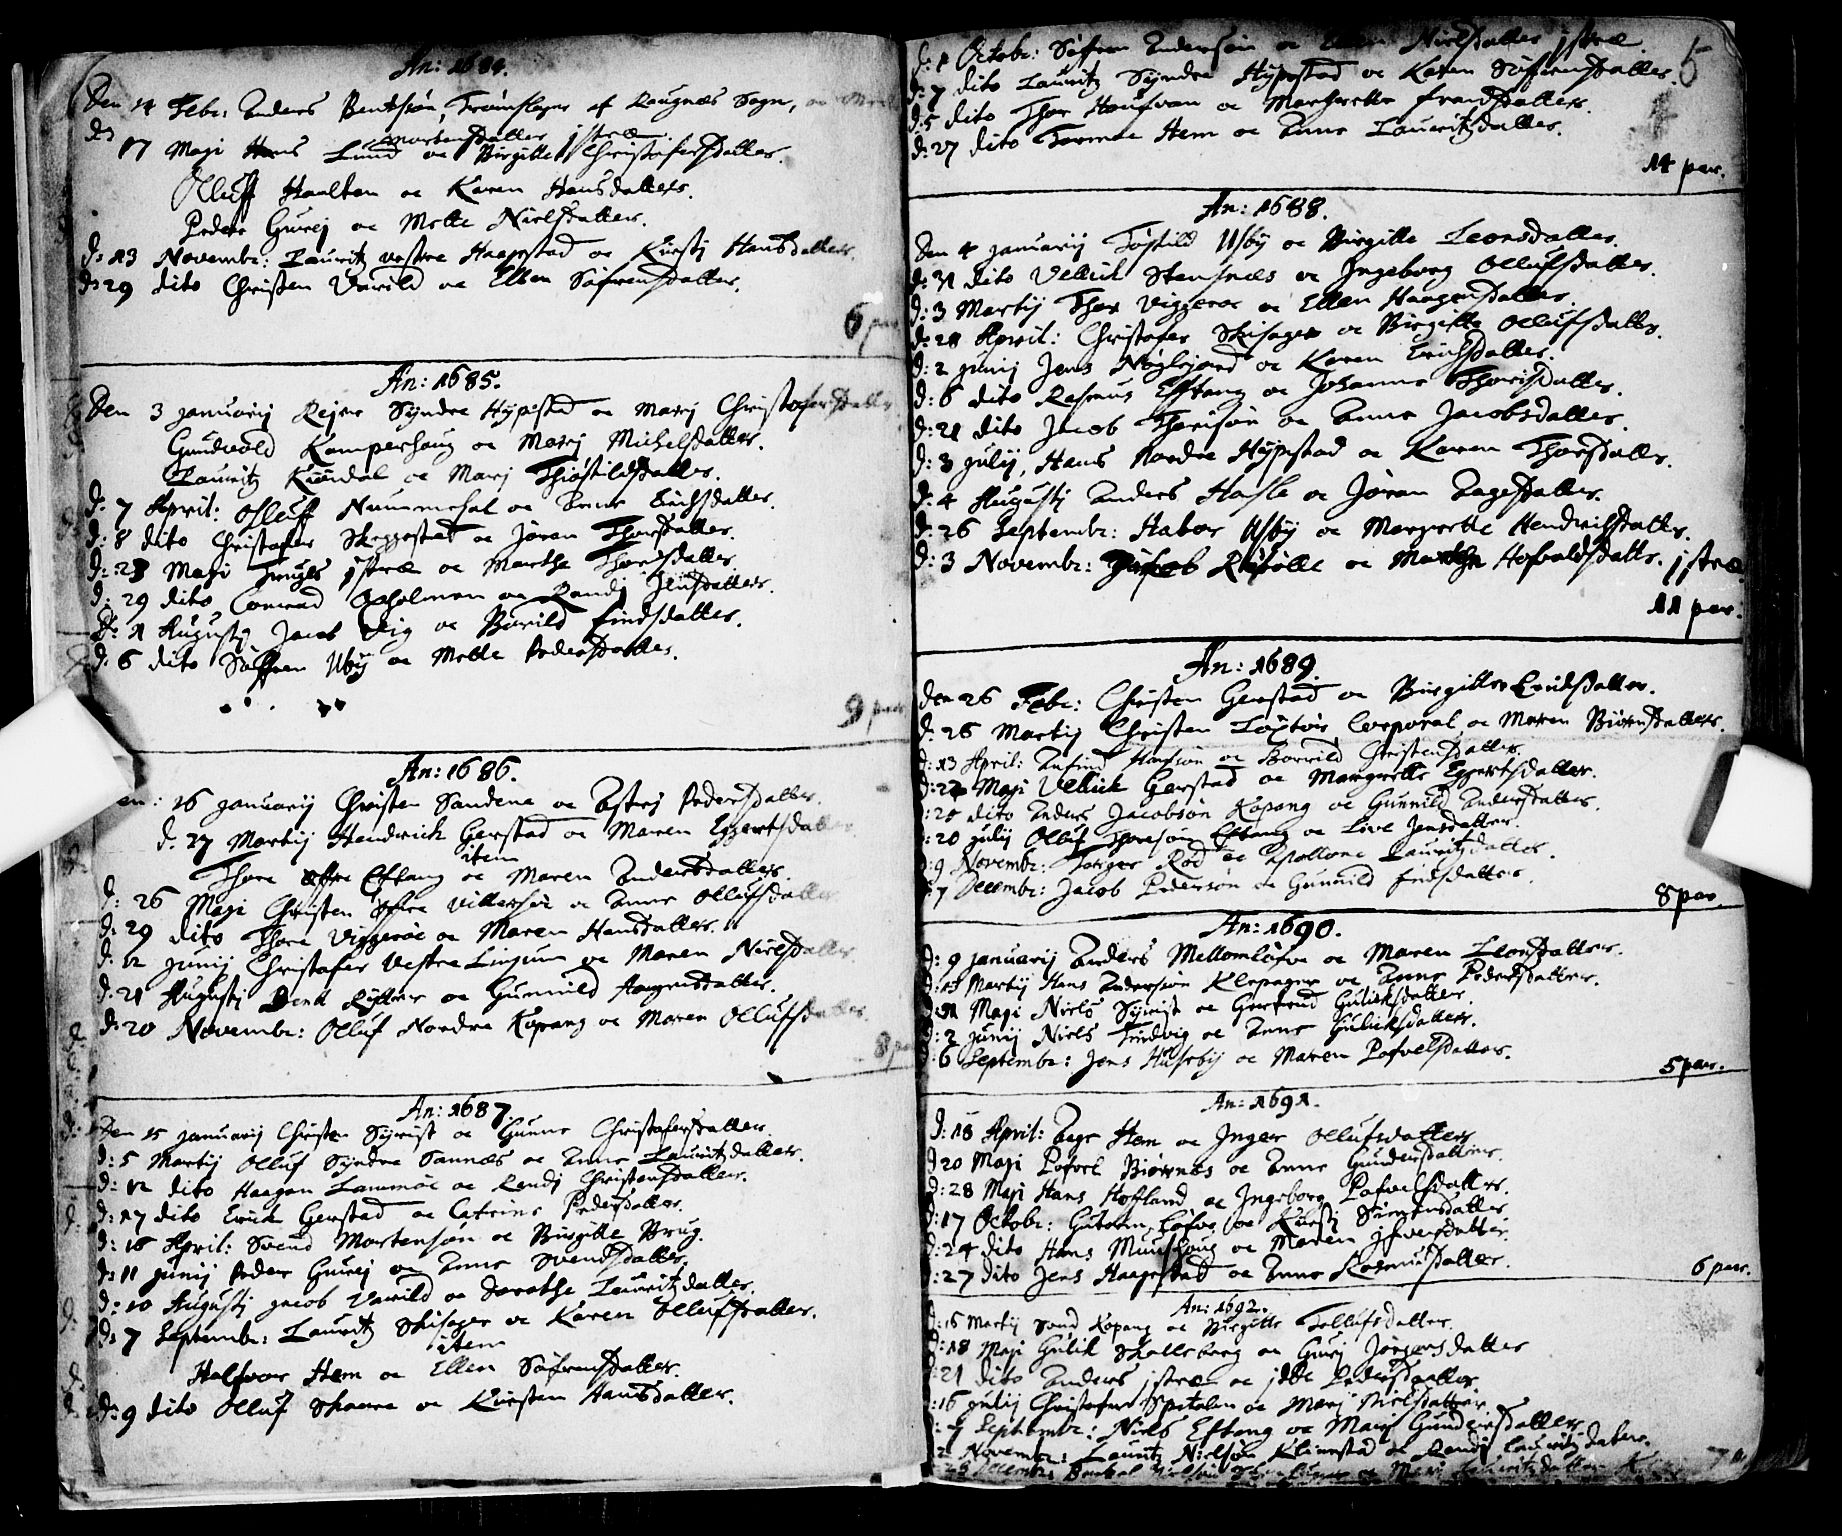 An: 1684.
Den 14 Febr: Anders Bentsøn, Tromslager af Raugnæs Sogn, oc
Mortensdatter jstræ.
d: 17 Maji Hans Lund oc Birgitte Christofersdatter.
Olluff Haalten oc Karen Hansdatter.
Peder Gurej oc Mette Nielsdatter.
d: 23 Novembr: Lauritz vestre Haapstad oc Kirstj Hansdatter.
d: 29 dito Christen Vavild oc Ellen Søfrensdatter.
6 par
An: 1685.
Den 3 januarij Rejer Syndre Hypestad oc Marj Christofersdatter
Gundvold Kamperhaug oc Marj Michelsdatter.
Lauritz Kiøndal oc Marj Thiøstilsdatter.
d: 7 April: Olluff Nummesal oc Anne Erichsdatter.
d: 8 dito Christofer Skeggestad oc Jøran Thorsdatter.
d: 23 Maji jstræ oc Marthe Thorsdatter.
d: 29 dito Conrad oc Randj
d: 1 Augustj Jacob Vig oc Borild Findsdatter.
d: 6 dito Søffren Uby oc Mette Pedersdatter.
9 par
An: 1686.
16 januarij Christen Sandene oc Astrj Pedersdatter.
d: 27 Martij Hendrich Gerstad oc Maren Eggertsdatter
item
Thore øfre Eftang oc Maren Andersdatter.
d: 26 Maji Christen øfre Villersøe oc Anne Ollufsdatter
d: 29 dito Thore Viggerøe oc Maren Hansdatter.
d: 12 junij Christofer Vestre Linjum oc Maren Nielsdatter
d: 21 Augustj Bent Rytter oc Gunnild Aagesdatter.
d: 20 Novembr: Olluf Nordre Kopang oc Maren Ollufsdatter
8 par
An: 1687
Den 15 januarij Christen Syrist oc Gunne Christofersdatter.
d: 5 Martij Olluf Syndre Sannæs oc Anne Lauritzdatter.
d: 12 dito Haagen Lammøe oc Randj Christensdatter.
d: 17 dito Erich Gerstad oc Catrine Pedersdatter.
d: 16 April: Svend Mortensøn oc Birgitte Brug.
d: 11 junij Peder Gurej oc Anne Svendsdatter.
d: 10 Augustj jacob Vavild oc Dorothe Lauritzdatter.
d: 7 Septembr: Lauritz Skisager oc Karen Ollufsdatter.
item
Halfvor Hem oc Ellen Søfrensdatter.
d: 9 dito Olluf Skaare oc Kirsten Hansdatter.
5
d: 1 Octobr: Søfren Andersøn oc Ellen Nielsdatter jstræ.
d: 7 dito Lauritz Syndre Hypestad oc Karen Søfrensdatter.
d: 5 dito Thor Hougvan oc Margrette Frandsdatter.
d: 27 dito Tormoe Hem oc Anne Lauritzdatter.
14 par.
An: 1688.
Den 4 januarij Tøstild Usby oc Birgitte Leonsdatter.
d: 31 dito Vellich Stensnæs oc Ingeborg Ollufsdatter.
d: 3 Martij Thor Viggerøe oc Ellen Haagensdatter.
d: 28 April: Christofer Skisager oc Birgitte Ollufsdattr.
d: 2 junij Jens Nøglegaard oc Karen Erichsdatter.
d: 6 dito Rasmus Eftang oc Johanne Thorisdatter.
d: 21 dito Jacob Thorisøn oc Anne Jacobsdatter.
d: 3 julij, Hans Nordre Hypestad oc Karen Thorsdattr.
d: 4 Augustj Anders Hasle oc Jøran Aagesdatter.
d: 26 Septembr: Stabor Usby oc Margrette Hendrichsdattr.
d: 3 Novembr: Jacob oc Marthe Hofvaldsdattr. jstræ.
11 par.
An: 1689.
Den 26 Febr: Christen Gerstad oc Birgitte Erichsdatter.
d: 26 Martij Christen Løytøe Corporal oc Maren Biørnsdatter.
d: 13 April: Anfind Hansøn oc Borrild Christensdatter.
d: 22 Maji Vellich Gerstad oc Margrette Eggertsdatter.
20 dito Anders Jacobsøn Kopang oc Gunnild Andersdatter.
20 julij Olluf Thoresøn Eftang oc Live Jensdatter.
9 Novembr: Torger Rød oc Apollone Lauritzdatter.
7 Decembr: Jacob Pedersøn oc Gunnild Findsdatter.
8 par.
An: 1690.
d: 9 januarij Anders Mellomløfve oc Maren Leonsdatter.
d: 13 Martij Hans Andersøn Klepager oc Anne Pedersdatter.
Maji Niels Syrist oc Gertrud Gulichsdatter.
d: 2 junij Niels Tindvig oc Anne Gulichsdatter.
6 Septembr: Jens Huseby oc Maren Pofvelsdatter.
5 par.
An: 1691.
d: 18 April: Aage Hem oc Inger Ollufsdatter
d 20 Maji Pofvel Biørnnes oc Anne Gundersdatter.
d: 28 Maji Hans Hofland oc Ingeborg Pofvelsdatter.
d: 17 Octobr: Gutorm Løfve oc Kirstj Simensdatter
d: 24 dito Hans Muushoug oc Maren jfversdatter.
d: 27 dito Jens Haapestad oc Anne Rasmusdatter.
6 par.
An: 1692.
d: 16 Martij Kopang oc Birgitte Tollufsdatter.
d: 18 Maji Gulich Skallsberg oc Gurj Jørgensdatter
21 dito Anders jstræ oc jdde Pedersdatter
16 julij Christofer Spitalen oc Marj Nielsdatter
7 Septembr: Niels Eftang oc Marj Gundersdatter
2 Novembr: Lauritz Nielsøn Klinestad oc Randj Lauritzdatter.
Decembr: oc Marj Lauritzdatter
7